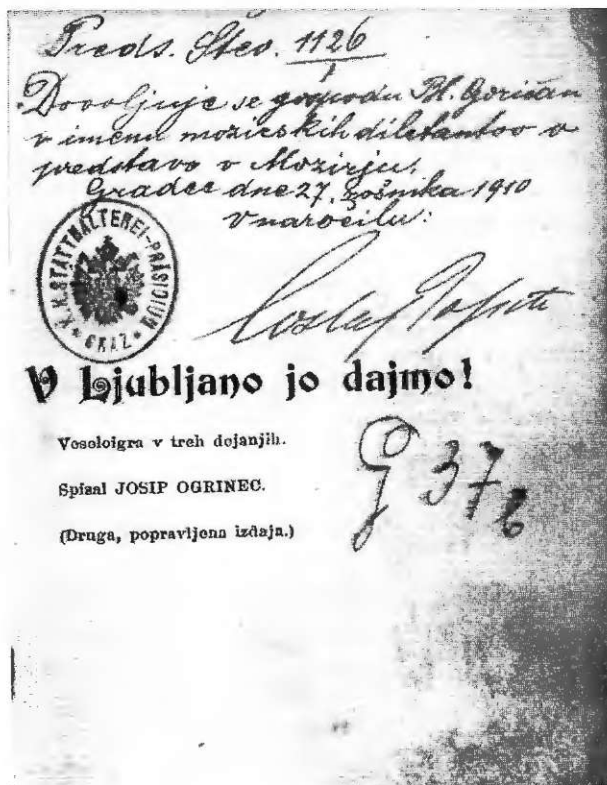 Preds. Štev. 1126
1
Dovoljuje se gospodu Bl. Goričan
v imenu mozirskih diletantov v
predstavo v Mozirju.
Gradec dne 27. rožnika 1910
V naročilu:
K.K. STATTHALTEREI-PRÄSIDIUM
GRAZ
V Ljubljano jo dajmo!
Veseloigra v treh dejanjih.
Spisal JOSIP OGRINEC.
(Druga, popravljena izdaja.)
G 37